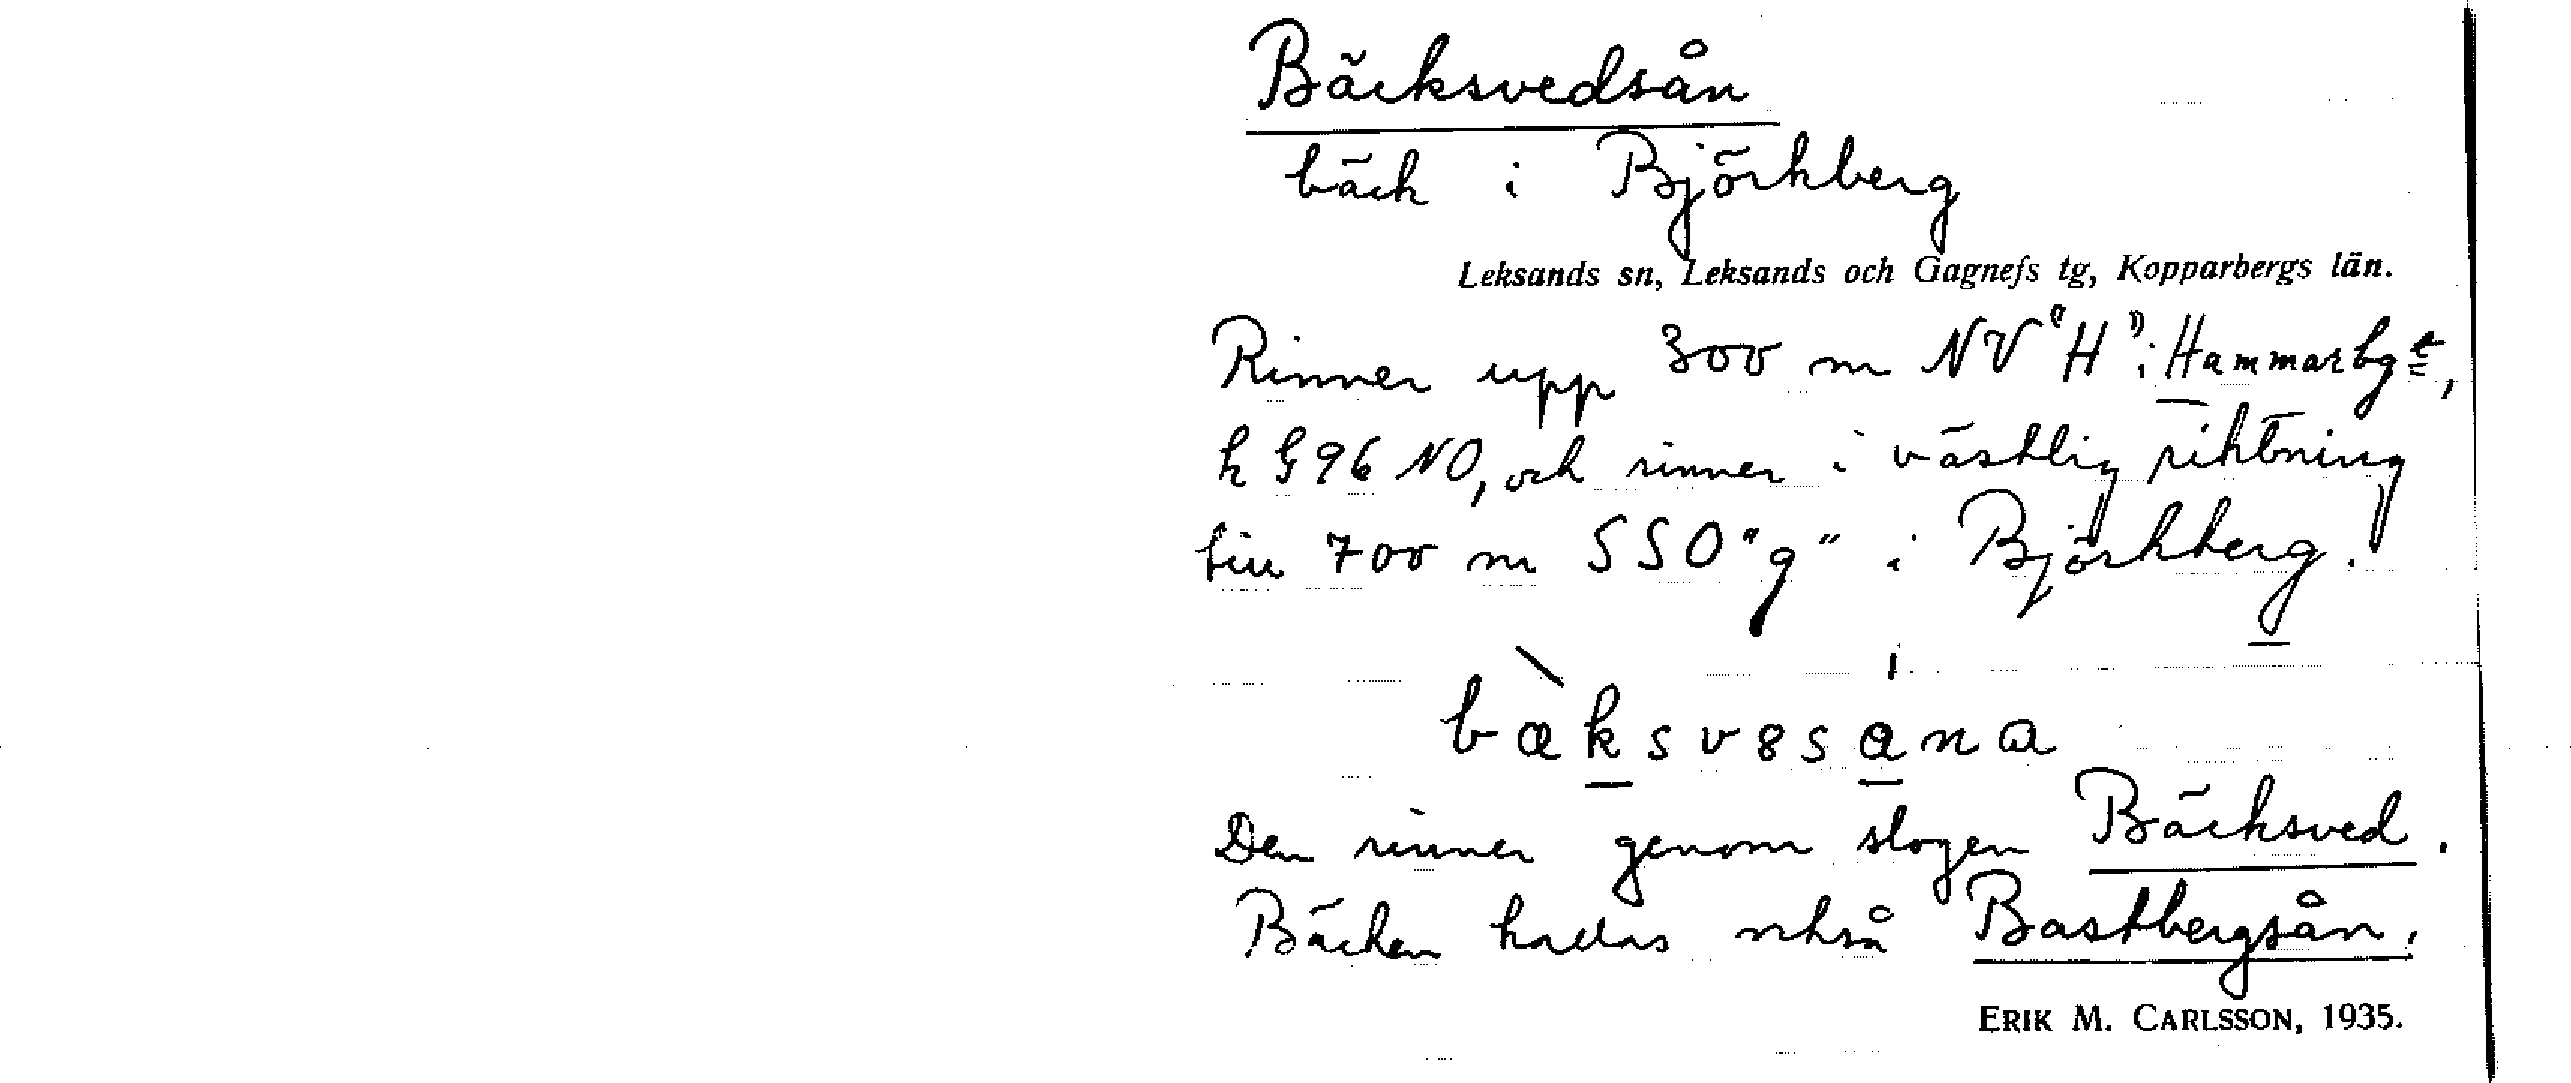 Bäcksvedsån
bäck i Björkberg
Leksands sn, Leksands och Gagnefs tg, Kopparbergs län.
Rinner upp 300 m NV "H" i Hammarbgt,
k G 96 NO, och rinner i västlig riktning
till 700 m SSO "g" i Björkberg.
bæksvesana
Den rinner genom slogen Bäcksved.
Bäcken kallas också Bastbergsån.
ERIK M. CARLSSON, 1935.